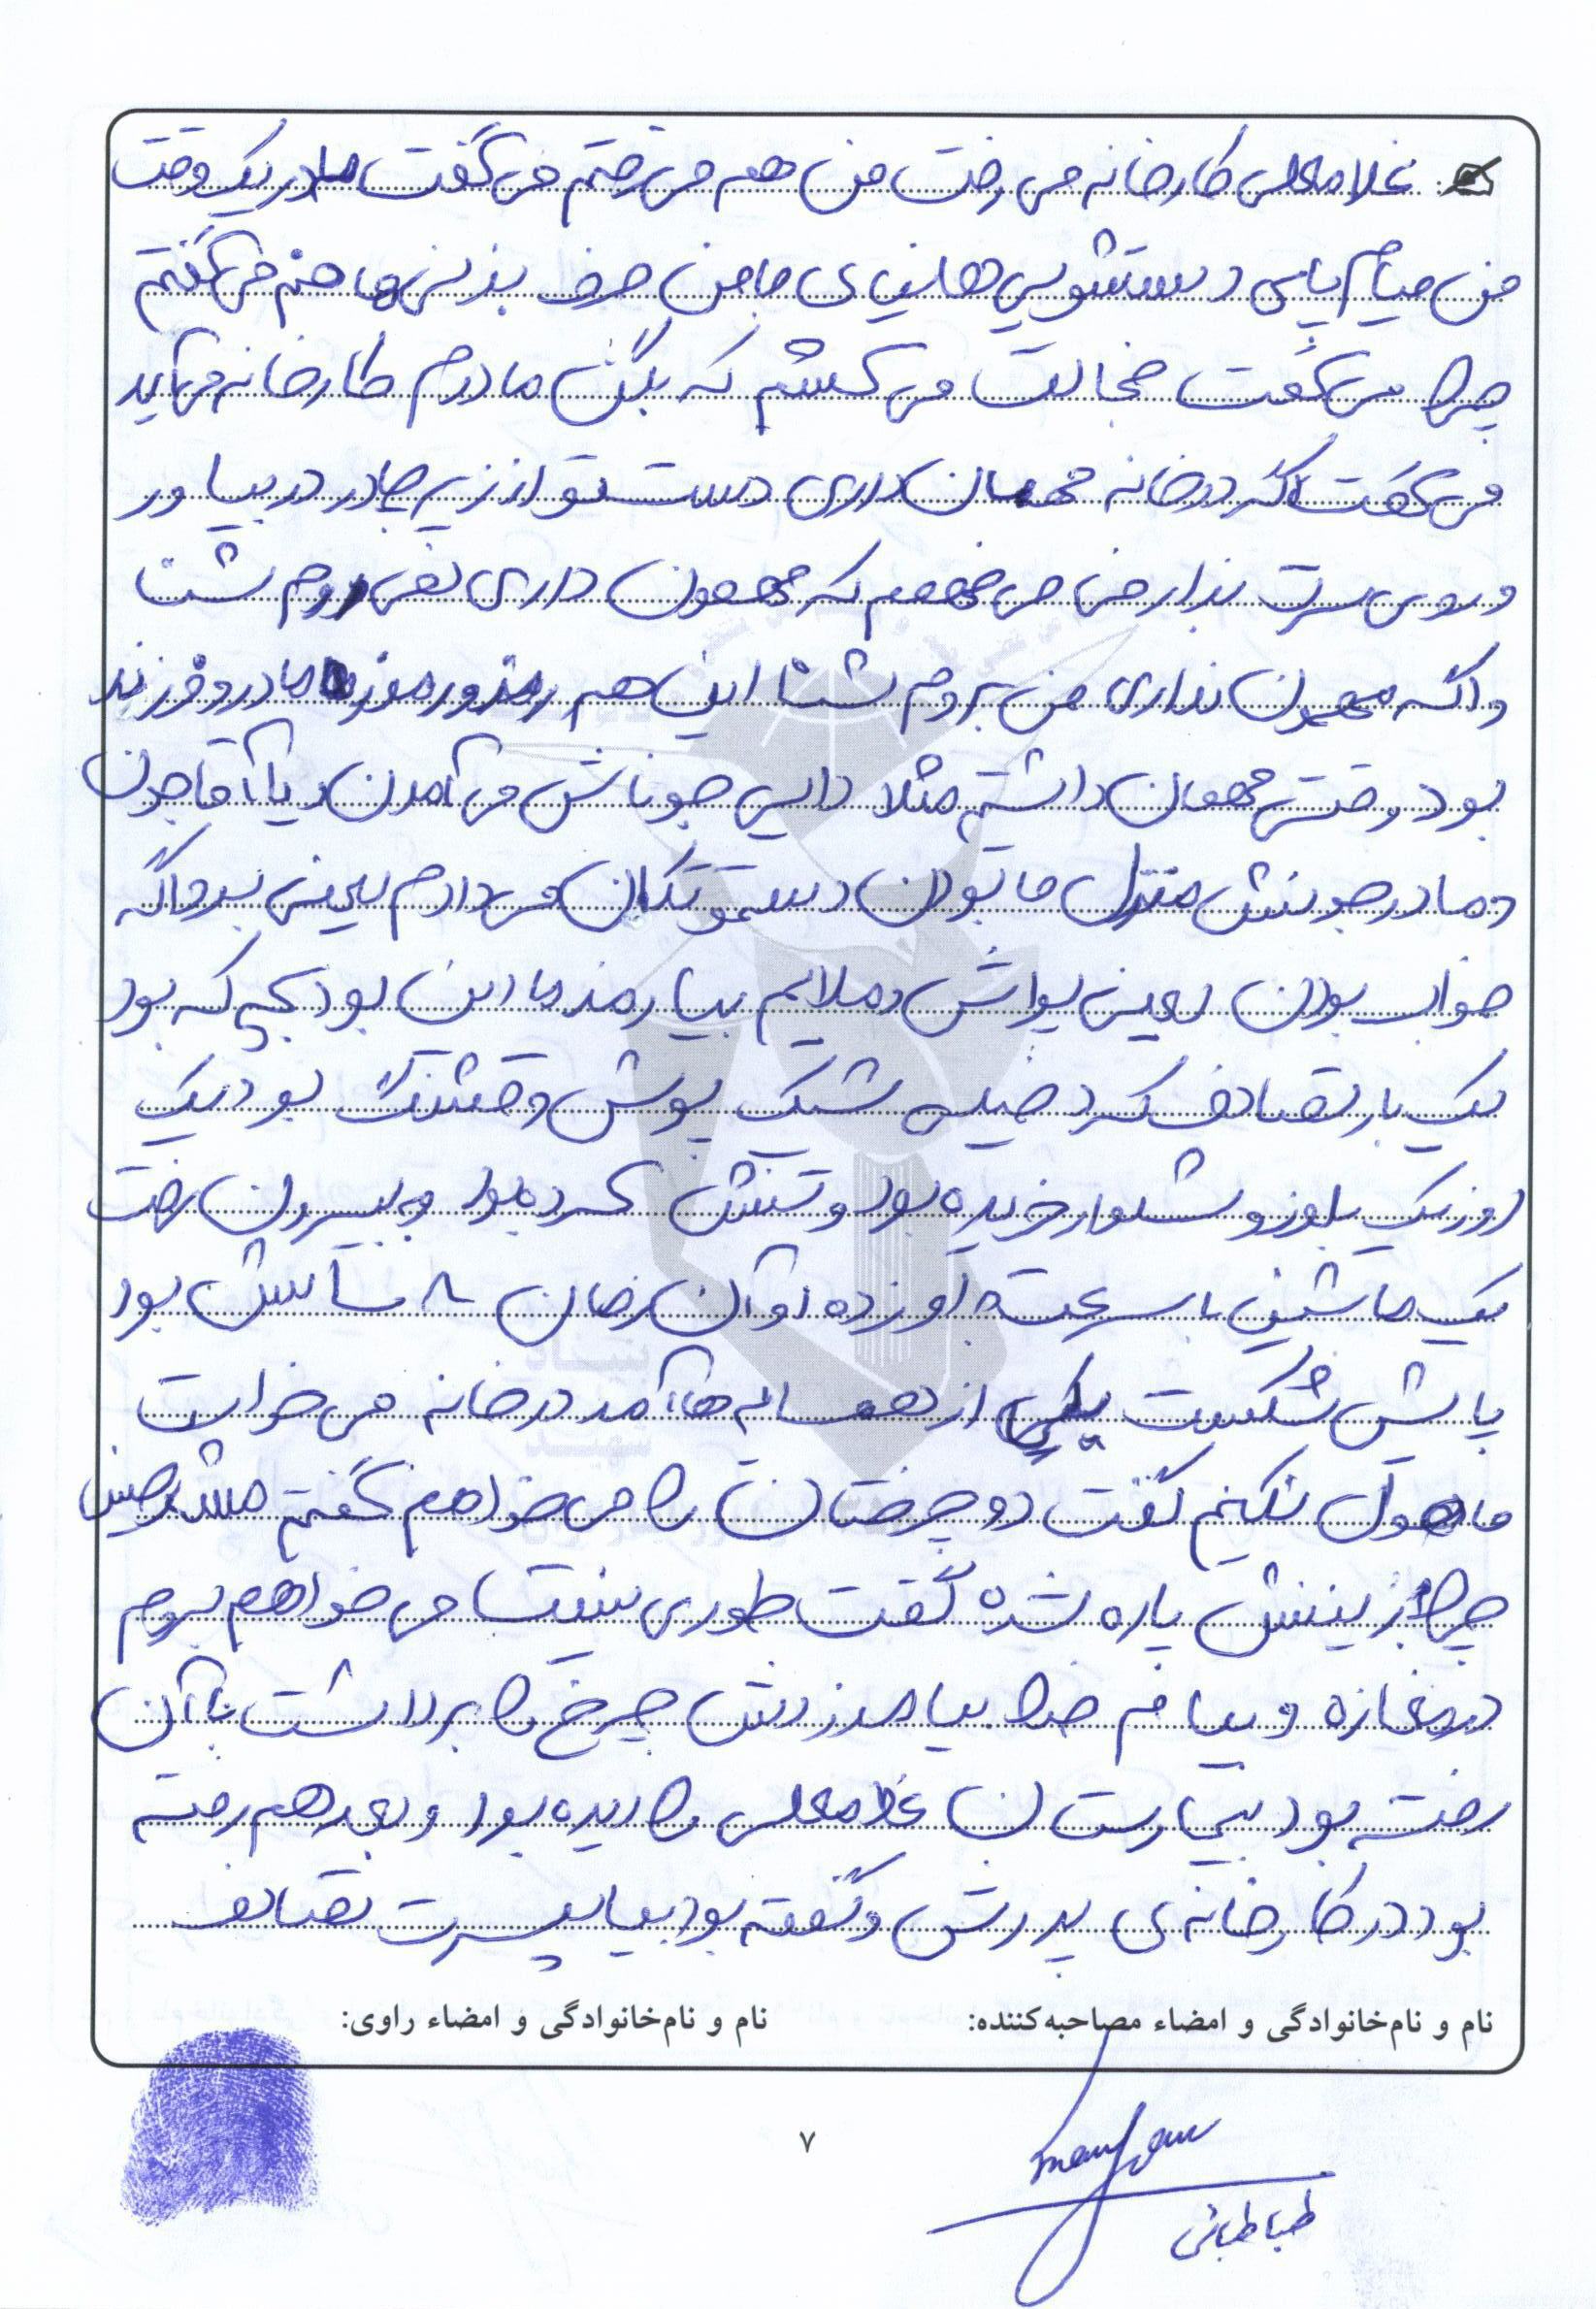 غلامعلی کارخانه می رفت من هم می رفتم می گفت مادر یک وقت
من میام پای دستشویی ها نیای با من حرف بزنی ها منم می گفتم
چرا می گفت خجالت می کشم که بگن مادرم کارخانه می آید
می گفت اگر در خانه مهمان داری دستتو از زیر چادر در بیاور
و روی سرت بذار من می فهمم که مهمون داری نمی روم شنا
و اگه مهمون نداری من بروم شنا این هم رمز و رموز ما مادر و فرزند
بود وقتی مهمان داشتم مثلا دایی جوناش می آمدن و یا آقاجون
و مادرجونش منزل ما بودن دستمو تکان می دادم یعنی برو اگه
خواب بودن یعنی یواش و ملایم بیا رمز ما این بود بچه که بود
یک بار تصادف کرد خیلی شیک پوش و قشنگ بود یک
روز یک بلوز و شلوار خریده بود و تنش کرده بود و بیرون رفت
یک ماشین با سرعت به او زده او آن زمان ۸ سالش بود
پایش شکست یکی از همسایه ها آمد در خانه می خواست
ما هول نکنیم گفت دوچرختان را می خواهم گفتم مشدحسین
چرا زینش پاره شده گفت طوری نیست می خواهم بروم
در مغازه و بیام خدا بیامرزدش چرخ را برداشت با آن
رفته بود بیمارستان غلامعلی را دیده بود و بعد هم رفته
بود در کارخانه ی پدرش و گفته بود بیا پسرت تصادف
نام و نام‌خانوادگی و امضاء مصاحبه‌کننده: نام و نام‌خانوادگی و امضاء راوی:
۷
طباطبائی